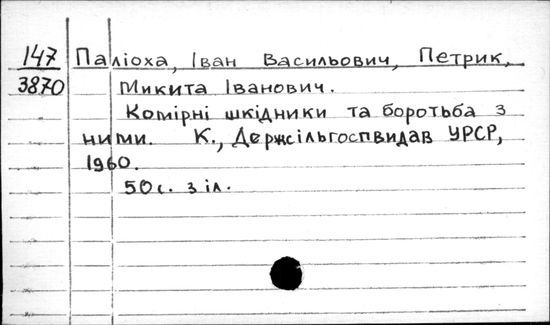 147 Паліоха, Іван Васильович, Петрик,
3870 Микита Іванович.
Комірні шкідники та боротьба з
ними. К., Держсільгоспвидав УРСР,
1960.
50с. з іл.